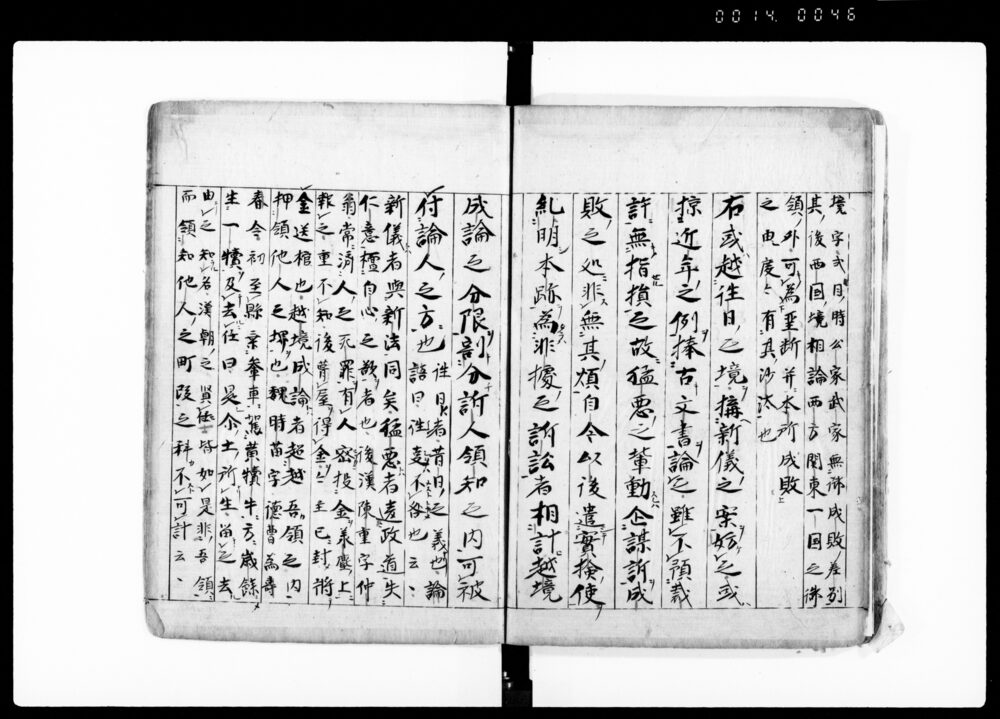 0014 0046
境字式目時公家武家無沛成敗差別
其後西国境相論西方関東一国之沛
領外可為聖断并本所成敗
之由度々有其沙汰也
右或越往日之境搆新儀之案妨之或
掠近年之例捧古文書論之雖不預裁
許無指損之故猛悪之輩動企謀訴成
敗之処非無其煩自今以後遣實検使
糺明本跡為非拠之訴訟者相計越境
成論之分限割分訴人領知之内可被
付論人之方也 往日者昔日之義也論
語曰往 不咎也云々
新儀者與新法同矣猛悪者違政道失
仁意檀自心之欲者也後漢陳重字仲
為常済人之死罪有人密投金於 上
報之重不知後葺屋得金主已封将
金送棺也越境成論者超越吾領之内
押領他人之堺也魏時苗字德曹為壽
春令初至縣乗 車駕黄犢牛方歳餘
生一犢及去任曰是今土所生留之去
由之知名漢朝之賢 皆如是非吾領
而領知他人之町段之科不可計云々